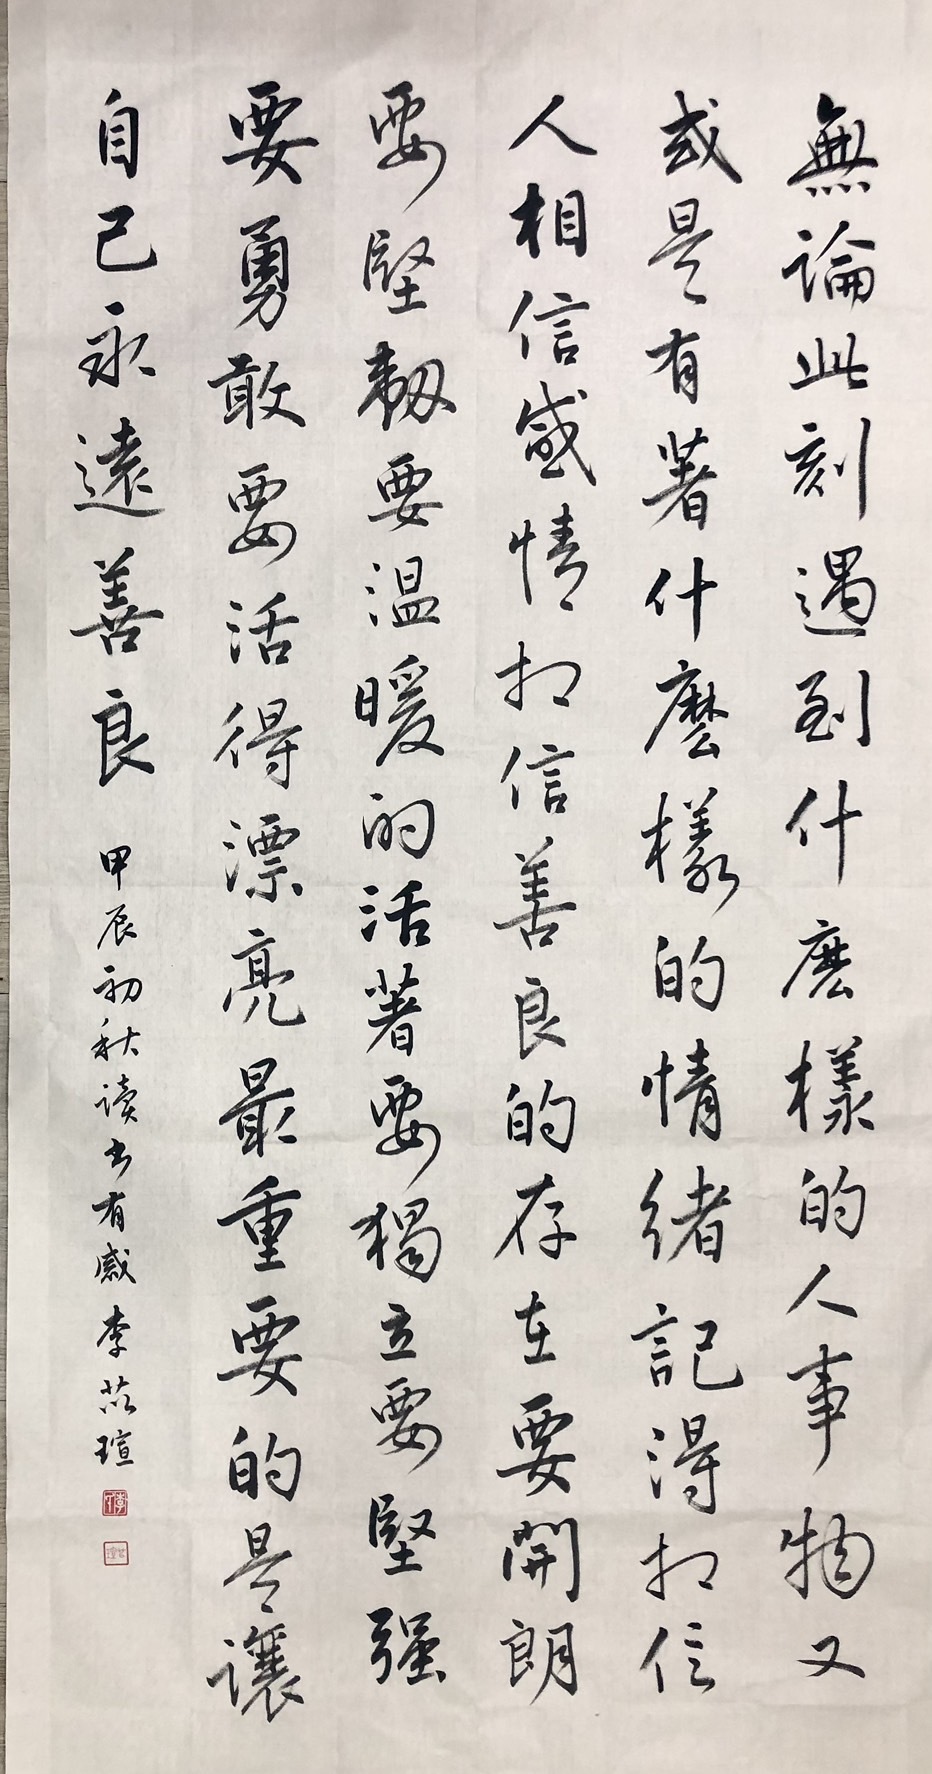 無論此刻遇到什麽樣的人事物又
或是有著什麽樣的情緒記得相信
人相信感情相信善良的存在要開朗
要堅韌要温暖的活著要獨立要堅强
要勇敢要活得漂亮最重要的是讓
自己永遠善良
甲辰初秋读书有感李苡瑄